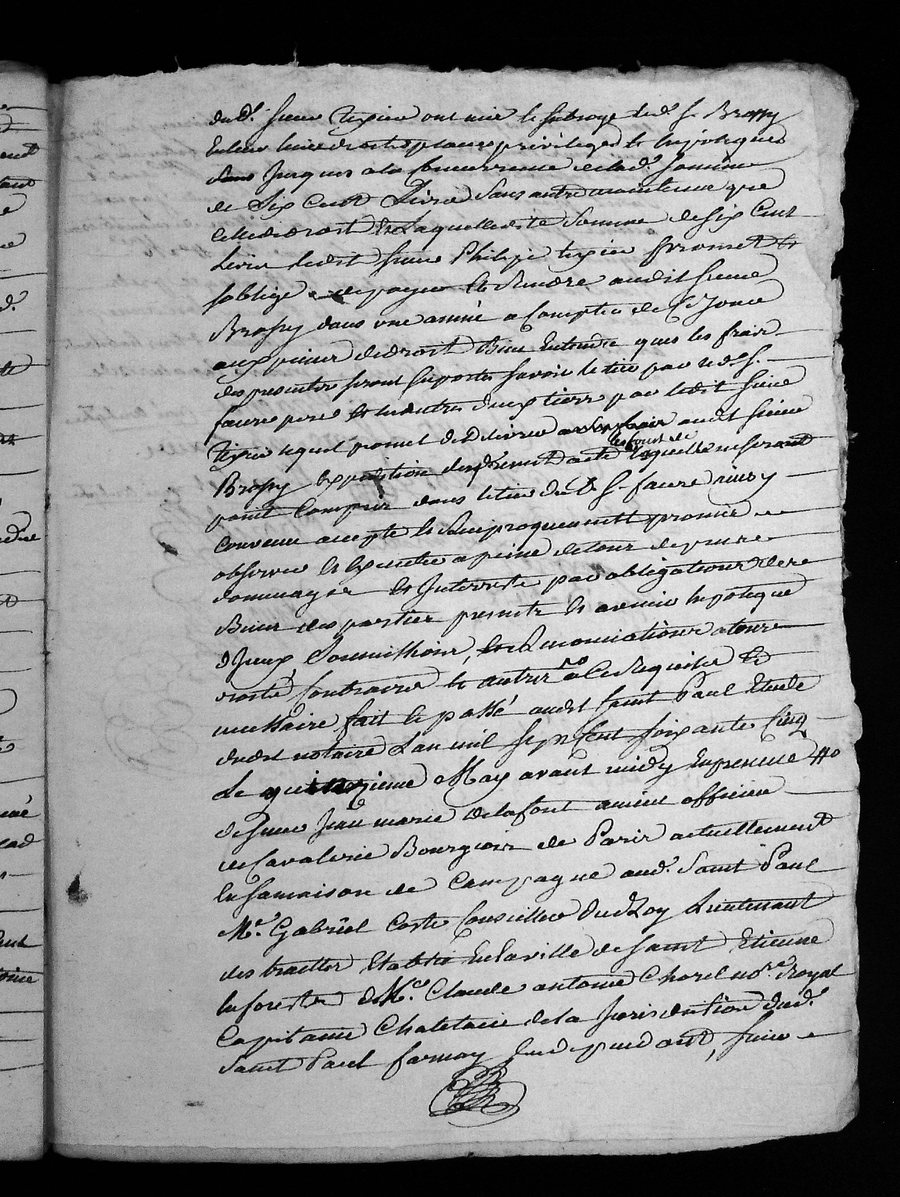 dud. sieur texier ont mis et subroge led. s. Brossy
en leur lieu droit place privileges et hypoteques
jusques a la concurrence de lad. somme
de six cent livres sans autre maintenue que
de leur droit et laquelle dite somme de six cent
livres ledit sieur Philipe texier promet et
soblige de payer et rendre audit sieur
Brossy dans une année a compter de ce jour
aux peines de droit bien entendu que les frais
des presentes seront suportes savoir le tiers par led. s.
faure pere et les autres deux tiers par ledit sieur
texier lequel promet de delivrer a ses frais audit sieur
Brossy expedition du present acte les cout de laquelle ne seront
point compris dans le tiers dud. s. faure ainsy
convenu accepté et reciproquement promis
observer et executer a peine de tous depens
dommages et interrests par obligations de
biens des parties presents et avenir hypoteque
d'yceux soumissions, et renonciations a tous
droits contraires et autres a ce requises et
necessaire fait et passé audit saint Paul Etude
dudit notaire l'an mil sept cent soixante cinq
Le quinzieme May avant midy En presence
de sieur Jean marie delafont ancien officier
de Cavalerie Bourgeois de Paris actuellement
En sa maison de Campagne aud. Saint Paul
Mr. Gabriel Coste Conseiller du Roy Lieutenant
des traittes Etablie En la ville de Saint Etienne
En forests & Me. Claude antoine Chorel nore. Royal
Capitaine Chatelain de la Jurisdiction dud.
Saint Paul farnay sieur